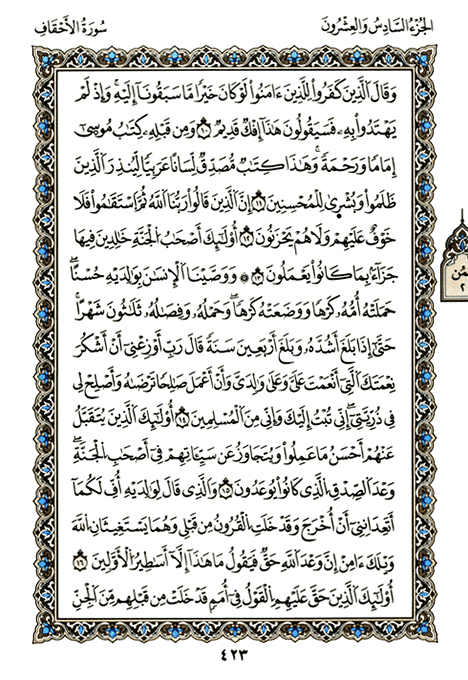 الجزء السادس والعشرون
سورة الأحقاف
وَقَالَ ٱلَّذِينَ كَفَرُواْ لِلَّذِينَ ءَامَنُواْ لَوۡ كَانَ خَيۡرٗا مَّا سَبَقُونَآ إِلَيۡهِۚ وَإِذۡ لَمۡ
يَهۡتَدُواْ بِهِۦ فَسَيَقُولُونَ هَٰذَآ إِفۡكٞ قَدِيمٞ ١٠ وَمِن قَبۡلِهِۦ كِتَٰبُ مُوسَىٰٓ
إِمَامٗا وَرَحۡمَةٗۚ وَهَٰذَا كِتَٰبٞ مُّصَدِّقٞ لِّسَانًا عَرَبِيّٗا لِّيُنذِرَ ٱلَّذِينَ
ظَلَمُواْ وَبُشۡرَىٰ لِلۡمُحۡسِنِينَ ١١ إِنَّ ٱلَّذِينَ قَالُواْ رَبُّنَا ٱللَّهُ ثُمَّ ٱسۡتَقَٰمُواْ فَلَا
خَوۡفٌ عَلَيۡهِمۡ وَلَا هُمۡ يَحۡزَنُونَ ١٢ أُوْلَٰٓئِكَ أَصۡحَٰبُ ٱلۡجَنَّةِ خَٰلِدِينَ فِيهَا
جَزَآءَۢ بِمَا كَانُواْ يَعۡمَلُونَ ١٣ ۞ وَوَصَّيۡنَا ٱلۡإِنسَٰنَ بِوَٰلِدَيۡهِ حُسۡنًاۖ
حَمَلَتۡهُ أُمُّهُۥ كَرۡهٗا وَوَضَعَتۡهُ كَرۡهٗاۖ وَحَمۡلُهُۥ وَفِصَٰلُهُۥ ثَلَٰثُونَ شَهۡرًاۚ
حَتَّىٰٓ إِذَا بَلَغَ أَشُدَّهُۥ وَبَلَغَ أَرۡبَعِينَ سَنَةٗ قَالَ رَبِّ أَوۡزِعۡنِيٓ أَنۡ أَشۡكُرَ
نِعۡمَتَكَ ٱلَّتِيٓ أَنۡعَمۡتَ عَلَيَّ وَعَلَىٰ وَٰلِدَيَّ وَأَنۡ أَعۡمَلَ صَٰلِحٗا تَرۡضَىٰهُ وَأَصۡلِحۡ لِي
فِي ذُرِّيَّتِيٓۖ إِنِّي تُبۡتُ إِلَيۡكَ وَإِنِّي مِنَ ٱلۡمُسۡلِمِينَ ١٤ أُوْلَٰٓئِكَ ٱلَّذِينَ يُتَقَبَّلُ
عَنۡهُمۡ أَحۡسَنُ مَا عَمِلُواْ وَيُتَجَاوَزُ عَن سَيِّـَٔاتِهِمۡ فِيٓ أَصۡحَٰبِ ٱلۡجَنَّةِۖ
وَعۡدَ ٱلصِّدۡقِ ٱلَّذِي كَانُواْ يُوعَدُونَ ١٥ وَٱلَّذِي قَالَ لِوَٰلِدَيۡهِ أُفِّ لَّكُمَآ
أَتَعِدَانِنِيٓ أَنۡ أُخۡرَجَ وَقَدۡ خَلَتِ ٱلۡقُرُونُ مِن قَبۡلِي وَهُمَا يَسۡتَغِيثَانِ ٱللَّهَ
وَيۡلَكَ ءَامِنۡ إِنَّ وَعۡدَ ٱللَّهِ حَقّٞ فَيَقُولُ مَا هَٰذَآ إِلَّآ أَسَٰطِيرُ ٱلۡأَوَّلِينَ ١٦
أُوْلَٰٓئِكَ ٱلَّذِينَ حَقَّ عَلَيۡهِمِ ٱلۡقَوۡلُ فِيٓ أُمَمٖ قَدۡ خَلَتۡ مِن قَبۡلِهِم مِّنَ ٱلۡجِنِّ
٤٢٣